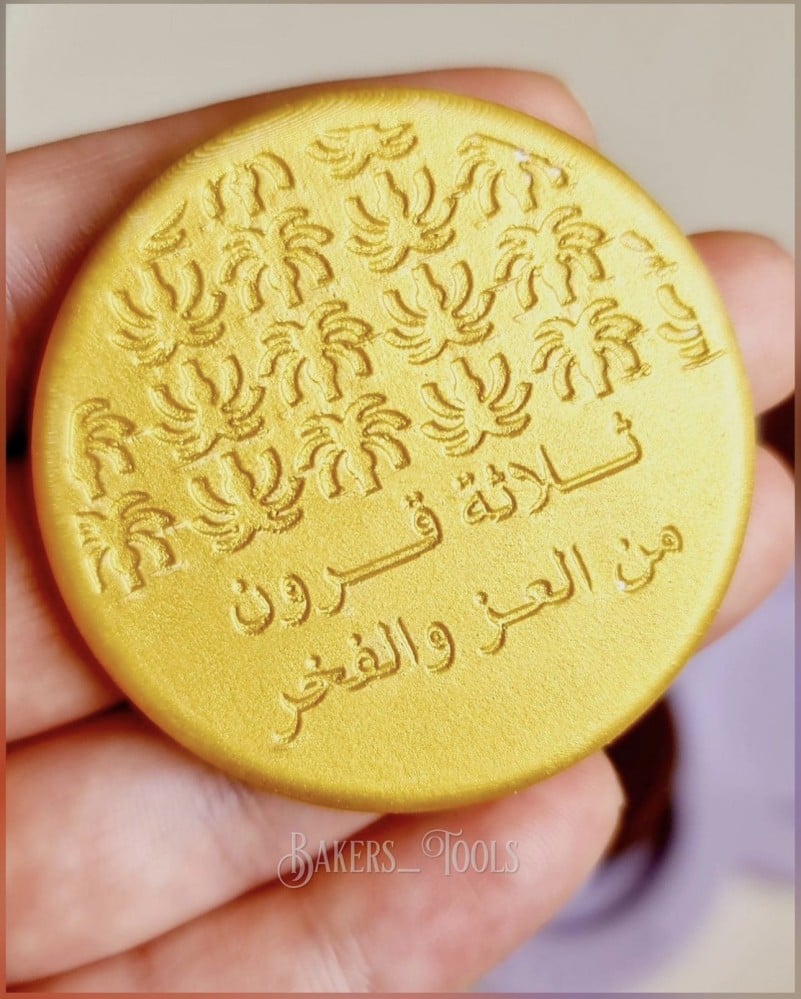 ثلاثة قرون
من العز والفخر
Bakers_Tools